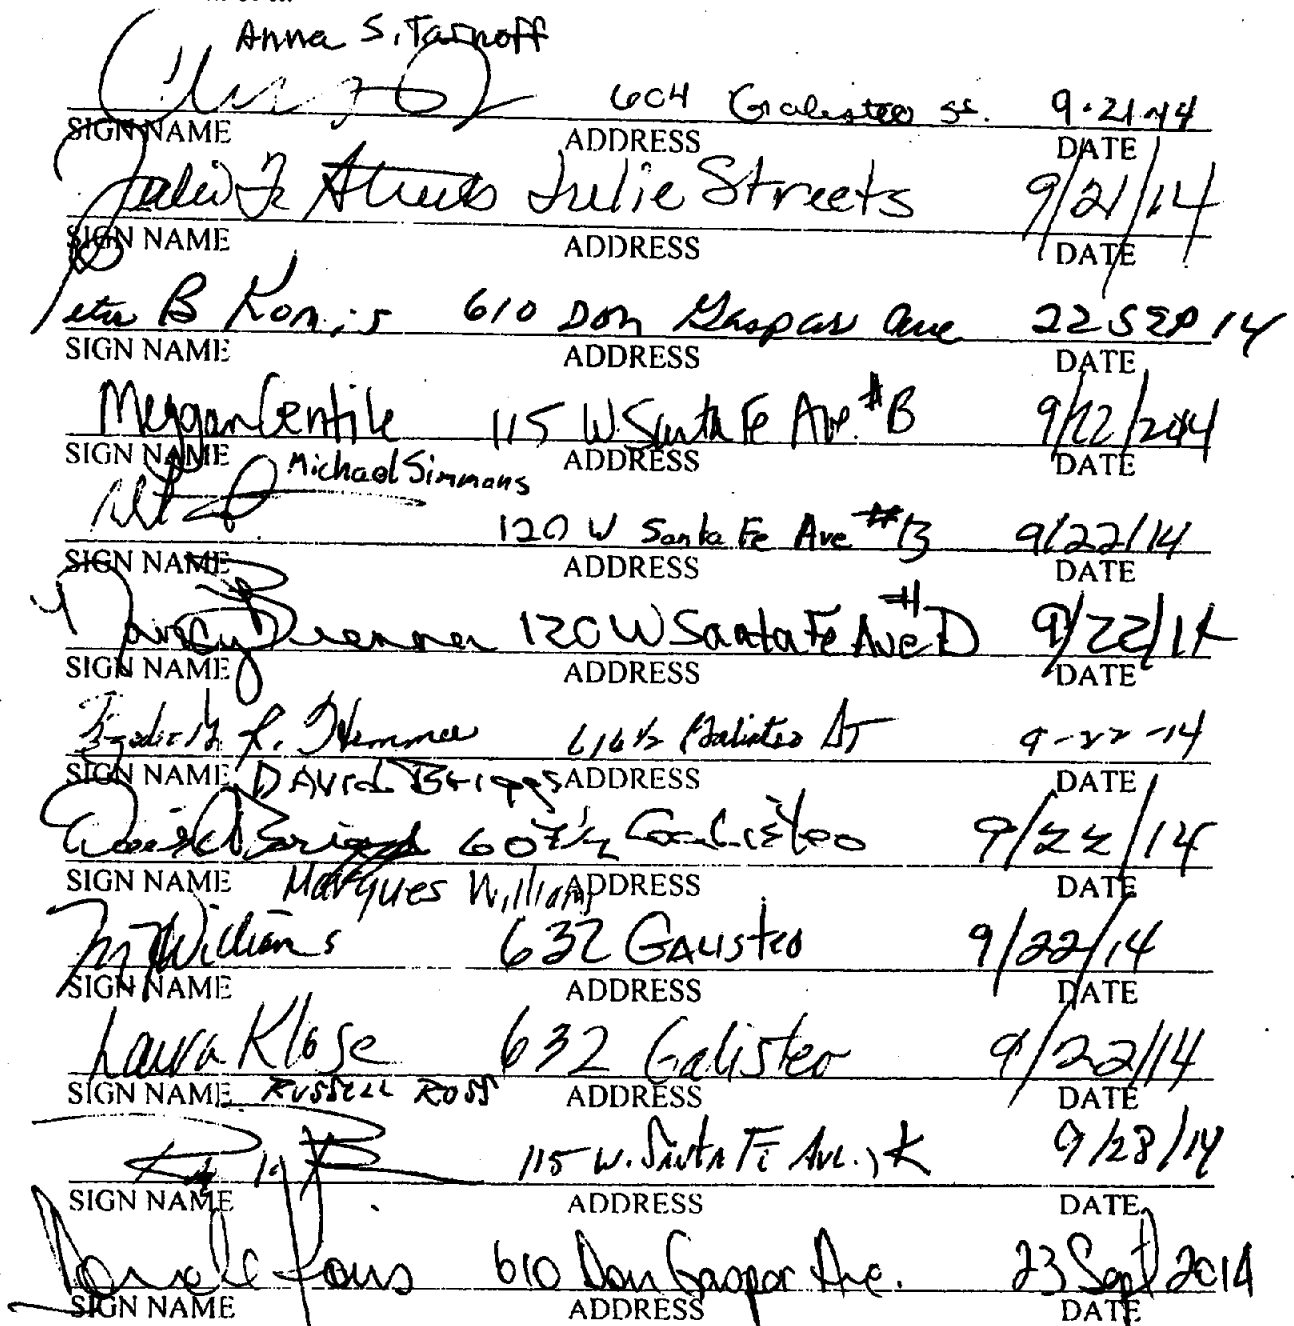 Anna S. Tarnoff
604 Galisteo St. 9-21-14
SIGN NAME ADDRESS DATE
Julie F Streets Julie Streets 9/21/14
SIGN NAME ADDRESS DATE
Peter B Komis 610 Don Gaspar Ave 22 SEP 14
SIGN NAME ADDRESS DATE
Meggan Gentile 115 W. Santa Fe Ave. #B 9/22/2014
SIGN NAME ADDRESS DATE
Michael Simmons
120 W Santa Fe Ave #B 9/22/14
SIGN NAME ADDRESS DATE
Nancy Brenner 120 W Santa Fe Ave #D 9/22/14
SIGN NAME ADDRESS DATE
616 1/2 Galisteo ST 9-22-14
SIGN NAME ADDRESS DATE
David Briggs
David Briggs 607 1/2 Galisteo 9/22/14
SIGN NAME ADDRESS DATE
Marques Williams
M Williams 632 Galisteo 9/22/14
SIGN NAME ADDRESS DATE
Laura Klose 632 Galisteo 9/22/14
SIGN NAME ADDRESS DATE
Russell Ross
115 W. Santa Fe Ave., K 9/28/14
SIGN NAME ADDRESS DATE
610 Don Gaspar Ave. 23 Sept 2014
SIGN NAME ADDRESS DATE